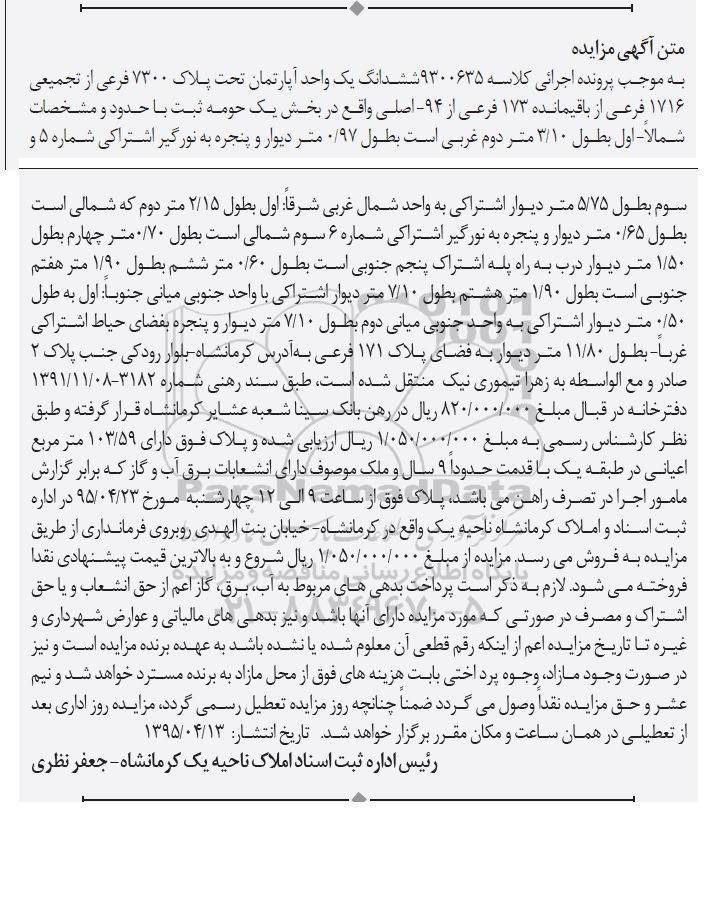 متن آگهی مزایده
به موجب پرونده اجرائی کلاسه ۹۳۰۰۶۳۵ششدانگ یک واحد آپارتمان تحت پلاک ۷۳۰۰ فرعی از تجمیعی
۱۷۱۶ فرعی از باقیمانده ۱۷۳ فرعی از ۹۴- اصلی واقع در بخش یک حومه ثبت با حدود و مشخصات
شمالاً- اول بطول ۳/۱۰ متر دوم غربی است بطول ۰/۹۷ متر دیوار و پنجره به نورگیر اشتراکی شماره ۵ و
سوم بطول ۵/۷۵ متر دیوار اشتراکی به واحد شمال غربی شرقاً: اول بطول ۲/۱۵ متر دوم که شمالی است
بطول ۰/۶۵ متر دیوار و پنجره به نورگیر اشتراکی شماره ۶ سوم شمالی است بطول ۰/۷۰متر چهارم بطول
۱/۵۰ متر دیوار درب به راه پله اشتراک پنجم جنوبی است بطول ۰/۶۰ متر ششم بطول ۱/۹۰ متر هفتم
جنوبی است بطول ۱/۹۰ متر هشتم بطول ۷/۱۰ متر دیوار اشتراکی با واحد جنوبی میانی جنوباً: اول به طول
۰/۵۰ متر دیوار اشتراکی به واحد جنوبی میانی دوم بطول ۷/۱۰ متر دیوار و پنجره بفضای حیاط اشتراکی
غرباً- بطول ۱۱/۸۰ متر دیوار به فضای پلاک ۱۷۱ فرعی به‌آدرس کرمانشاه-بلوار رودکی جنب پلاک ۲
صادر و مع الواسطه به زهرا تیموری نیک منتقل شده است، طبق سند رهنی شماره ۳۱۸۲-۱۳۹۱/۱۱/۰۸
دفترخانه در قبال مبلغ ۸۲۰/۰۰۰/۰۰۰ ریال در رهن بانک سینا شعبه عشایر کرمانشاه قرار گرفته و طبق
نظر کارشناس رسمی به مبلغ ۱/۰۵۰/۰۰۰/۰۰۰ ریال ارزیابی شده و پلاک فوق دارای ۱۰۳/۵۹ متر مربع
اعیانی در طبقه یک با قدمت حدوداً ۹ سال و ملک موصوف دارای انشعابات برق آب و گاز که برابر گزارش
مامور اجرا در تصرف راهن می باشد، پلاک فوق از ساعت ۹ الی ۱۲ چهارشنبه مورخ ۹۵/۰۴/۲۳ در اداره
ثبت اسناد و املاک کرمانشاه ناحیه یک واقع در کرمانشاه- خیابان بنت الهدی روبروی فرمانداری از طریق
مزایده به فروش می رسد. مزایده از مبلغ ۱/۰۵۰/۰۰۰/۰۰۰ ریال شروع و به بالاترین قیمت پیشنهادی نقدا
فروخته می شود. لازم به ذکر است پرداخت بدهی های مربوط به آب، برق، گاز اعم از حق انشعاب و یا حق
اشتراک و مصرف در صورتی که مورد مزایده دارای آنها باشد و نیز بدهی های مالیاتی و عوارض شهرداری و
غیره تا تاریخ مزایده اعم از اینکه رقم قطعی آن معلوم شده یا نشده باشد به عهده برنده مزایده است و نیز
در صورت وجود مازاد، وجوه پرد اختی بابت هزینه های فوق از محل مازاد به برنده مسترد خواهد شد و نیم
عشر و حق مزایده نقداً وصول می گردد ضمناً چنانچه روز مزایده تعطیل رسمی گردد، مزایده روز اداری بعد
از تعطیلی در همان ساعت و مکان مقرر برگزار خواهد شد. تاریخ انتشار: ۱۳۹۵/۰۴/۱۳
رئیس اداره ثبت اسناد املاک ناحیه یک کرمانشاه- جعفر نظری
ParaNamadData
پایگاه اطلاع رسانی مناقصه و مزایده
۰۲۱-۸۸۳۴۹۶۷۰-۵